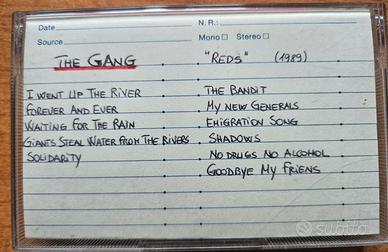 Date N.R.:
Source Mono Stereo
THE GANG "REDS" (1989)
I WENT UP THE RIVER
FOREVER AND EVER
WAITING FOR THE RAIN
GIANTS STEAL WATER FROM THE RIVERS
SOLIDARITY
THE BANDIT
MY NEW GENERALS
EMIGRATION SONG
SHADOWS
NO DRUGS NO ALCOHOL
GOODBYE MY FRIENS
subito